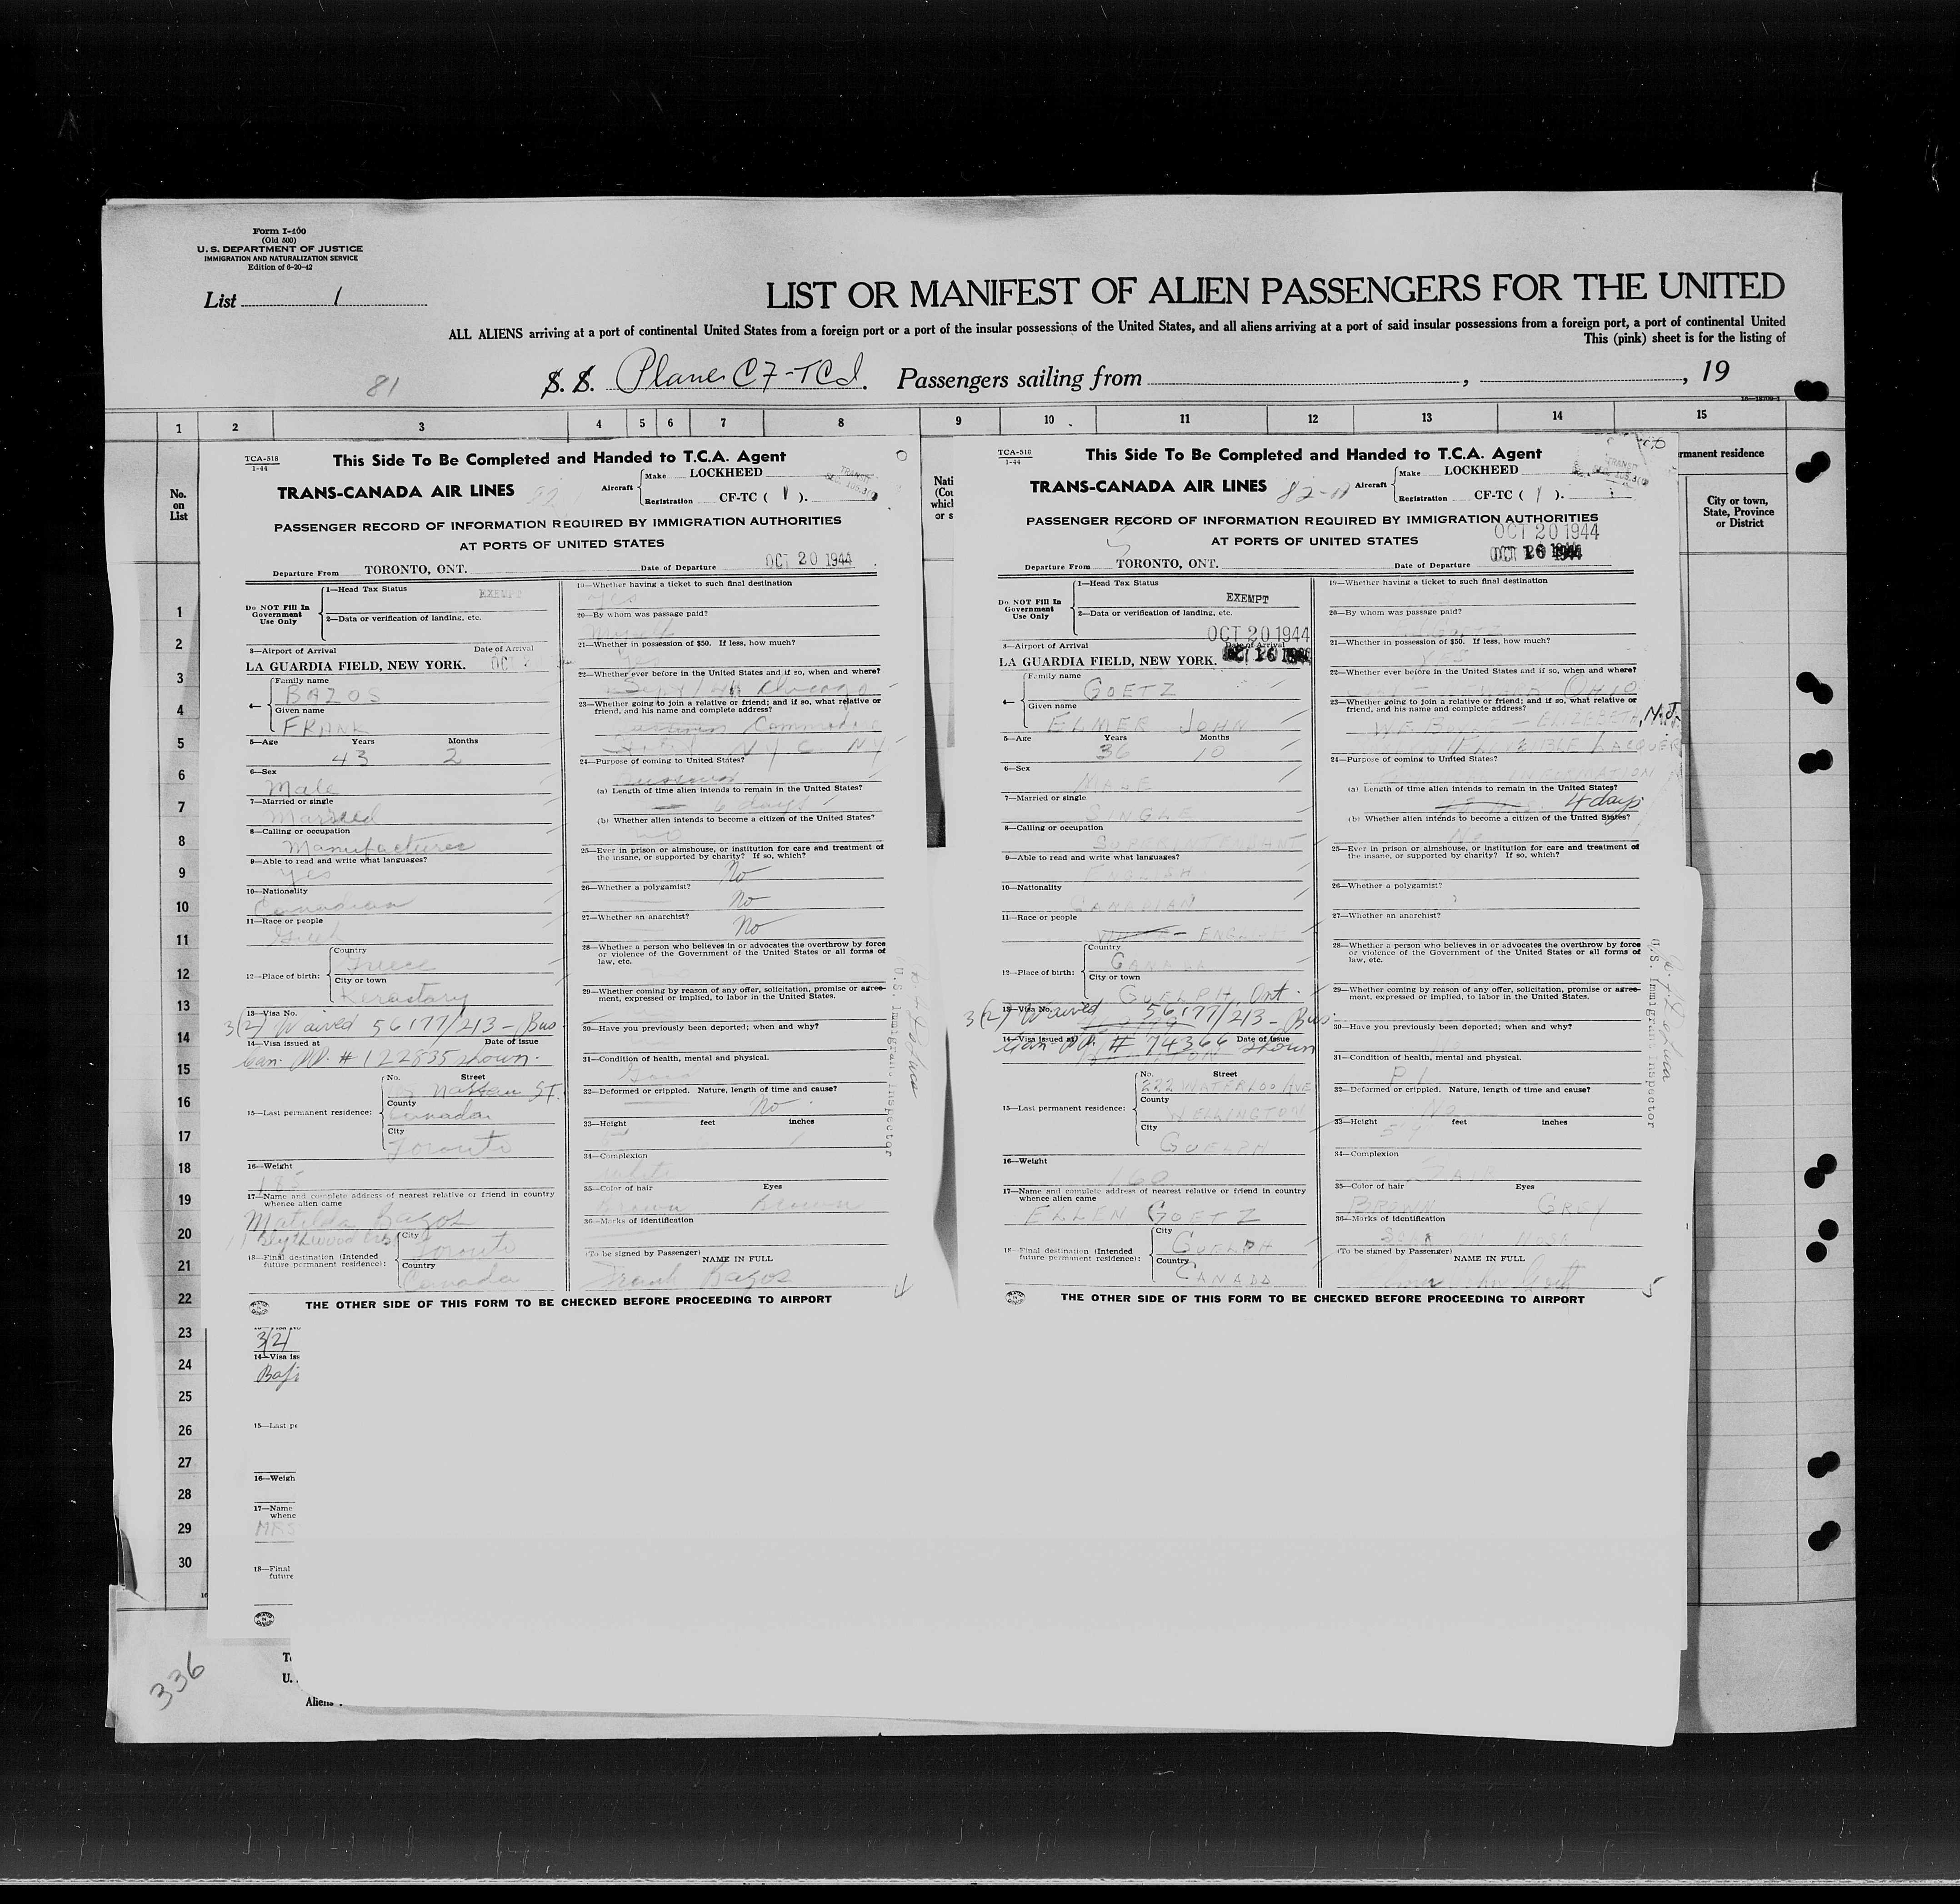 Form I-400
(Old 500)
U. S. DEPARTMENT OF JUSTICE
IMMIGRATION AND NATURALIZATION SERVICE
Edition of 6-20-42
List 1
LIST OR MANIFEST OF ALIEN PASSENGERS FOR THE UNITED
ALL ALIENS arriving at a port of continental United States from a foreign port or a port of the insular possessions of the United States, and all aliens arriving at a port of said insular possessions from a foreign port, a port of continental United
This (pink) sheet is for the listing of
81
S. S. Plane CF-TCI. Passengers sailing from , , 19
1 2 3 4 5 6 7 8 9 10 11 12 13 14 15
No. on List
rmanent residence
City or town, State, Province or District
1
2
3
4
5
6
7
8
9
10
11
12
13
14
15
16
17
18
19
20
21
22
23
24
25
26
27
28
29
30
TCA-518
1-44
This Side To Be Completed and Handed to T.C.A. Agent
TRANS-CANADA AIR LINES
Aircraft
Make LOCKHEED
Registration CF-TC ( 1 ).
PASSENGER RECORD OF INFORMATION REQUIRED BY IMMIGRATION AUTHORITIES
AT PORTS OF UNITED STATES
Departure From TORONTO, ONT. Date of Departure OCT 20 1944
Do NOT Fill In Government Use Only
1—Head Tax Status EXEMPT
2—Data or verification of landing, etc.
3—Airport of Arrival Date of Arrival
LA GUARDIA FIELD, NEW YORK. OCT 2
4—
Family name
BAZOS
Given name
FRANK
5—Age Years Months
43 2
6—Sex
Male
7—Married or single
Married
8—Calling or occupation
Manufacturer
9—Able to read and write what languages?
Yes
10—Nationality
Canadian
11—Race or people
Greek
12—Place of birth:
Country
Greece
City or town
13—Visa No.
3(2) Waived 56177/213 - Bus.
14—Visa issued at Date of issue
Can. PP. # 122835 shown.
15—Last permanent residence:
No. Street
Nassau St.
County
Canada
City
Toronto
16—Weight
17—Name and complete address of nearest relative or friend in country
whence alien came
Matilda Bazos
Blythwood Cres
18—Final destination (Intended
future permanent residence):
City
Toronto
Country
Canada
19—Whether having a ticket to such final destination
Yes
20—By whom was passage paid?
Myself
21—Whether in possession of $50. If less, how much?
Yes
22—Whether ever before in the United States and if so, when and where?
Chicago
23—Whether going to join a relative or friend; and if so, what relative or
friend, and his name and complete address?
Commodore
Hotel N.Y.C. N.Y.
24—Purpose of coming to United States?
(a) Length of time alien intends to remain in the United States?
6 days
(b) Whether alien intends to become a citizen of the United States?
no
25—Ever in prison or almshouse, or institution for care and treatment of
the insane, or supported by charity? If so, which?
No
26—Whether a polygamist?
No
27—Whether an anarchist?
No
28—Whether a person who believes in or advocates the overthrow by force
or violence of the Government of the United States or all forms of
law, etc.
29—Whether coming by reason of any offer, solicitation, promise or agree-
ment, expressed or implied, to labor in the United States.
30—Have you previously been deported; when and why?
31—Condition of health, mental and physical.
32—Deformed or crippled. Nature, length of time and cause?
No
33—Height feet inches
34—Complexion
White
35—Color of hair Eyes
Brown Brown
36—Marks of identification
(To be signed by Passenger) NAME IN FULL
Frank Bazos
THE OTHER SIDE OF THIS FORM TO BE CHECKED BEFORE PROCEEDING TO AIRPORT
U.S. Immigrant Inspector
TCA-518
1-44
This Side To Be Completed and Handed to T.C.A. Agent
TRANS-CANADA AIR LINES
Aircraft
Make LOCKHEED
Registration CF-TC ( 1 ).
PASSENGER RECORD OF INFORMATION REQUIRED BY IMMIGRATION AUTHORITIES
AT PORTS OF UNITED STATES
OCT 20 1944
Departure From TORONTO, ONT. Date of Departure OCT 16 1944
Do NOT Fill In Government Use Only
1—Head Tax Status EXEMPT
2—Data or verification of landing, etc.
OCT 20 1944
3—Airport of Arrival Date of Arrival
LA GUARDIA FIELD, NEW YORK.
4—
Family name
GOETZ
Given name
ELMER JOHN
5—Age Years Months
36 10
6—Sex
MALE
7—Married or single
SINGLE
8—Calling or occupation
SUPERINTENDANT
9—Able to read and write what languages?
ENGLISH
10—Nationality
CANADIAN
11—Race or people
ENGLISH
12—Place of birth:
Country
CANADA
City or town
GUELPH, Ont.
13—Visa No.
3(2) Waived 56177/213 - Bus.
14—Visa issued at Date of issue
Can. PP. # 74366 shown
15—Last permanent residence:
No. Street
222 WATERLOO AVE
County
WELLINGTON
City
GUELPH
16—Weight
160
17—Name and complete address of nearest relative or friend in country
whence alien came
ELLEN GOETZ
18—Final destination (Intended
future permanent residence):
City
GUELPH
Country
CANADA
19—Whether having a ticket to such final destination
20—By whom was passage paid?
21—Whether in possession of $50. If less, how much?
YES
22—Whether ever before in the United States and if so, when and where?
OHIO
23—Whether going to join a relative or friend; and if so, what relative or
friend, and his name and complete address?
ELIZEBETH, N.J.
LACQUER
24—Purpose of coming to United States?
INFORMATION
(a) Length of time alien intends to remain in the United States?
4 days
(b) Whether alien intends to become a citizen of the United States?
No
25—Ever in prison or almshouse, or institution for care and treatment of
the insane, or supported by charity? If so, which?
26—Whether a polygamist?
27—Whether an anarchist?
28—Whether a person who believes in or advocates the overthrow by force
or violence of the Government of the United States or all forms of
law, etc.
29—Whether coming by reason of any offer, solicitation, promise or agree-
ment, expressed or implied, to labor in the United States.
30—Have you previously been deported; when and why?
31—Condition of health, mental and physical.
32—Deformed or crippled. Nature, length of time and cause?
No
33—Height feet inches
34—Complexion
FAIR
35—Color of hair Eyes
BROWN GREY
36—Marks of identification
SCAR ON NOSE
(To be signed by Passenger) NAME IN FULL
Elmer John Goetz
THE OTHER SIDE OF THIS FORM TO BE CHECKED BEFORE PROCEEDING TO AIRPORT
U.S. Immigrant Inspector
3(2)
14—Visa iss
15—Last pe
16—Weigh
17—Name
whenc
MRS
18—Final
future
336
U.
Aliens